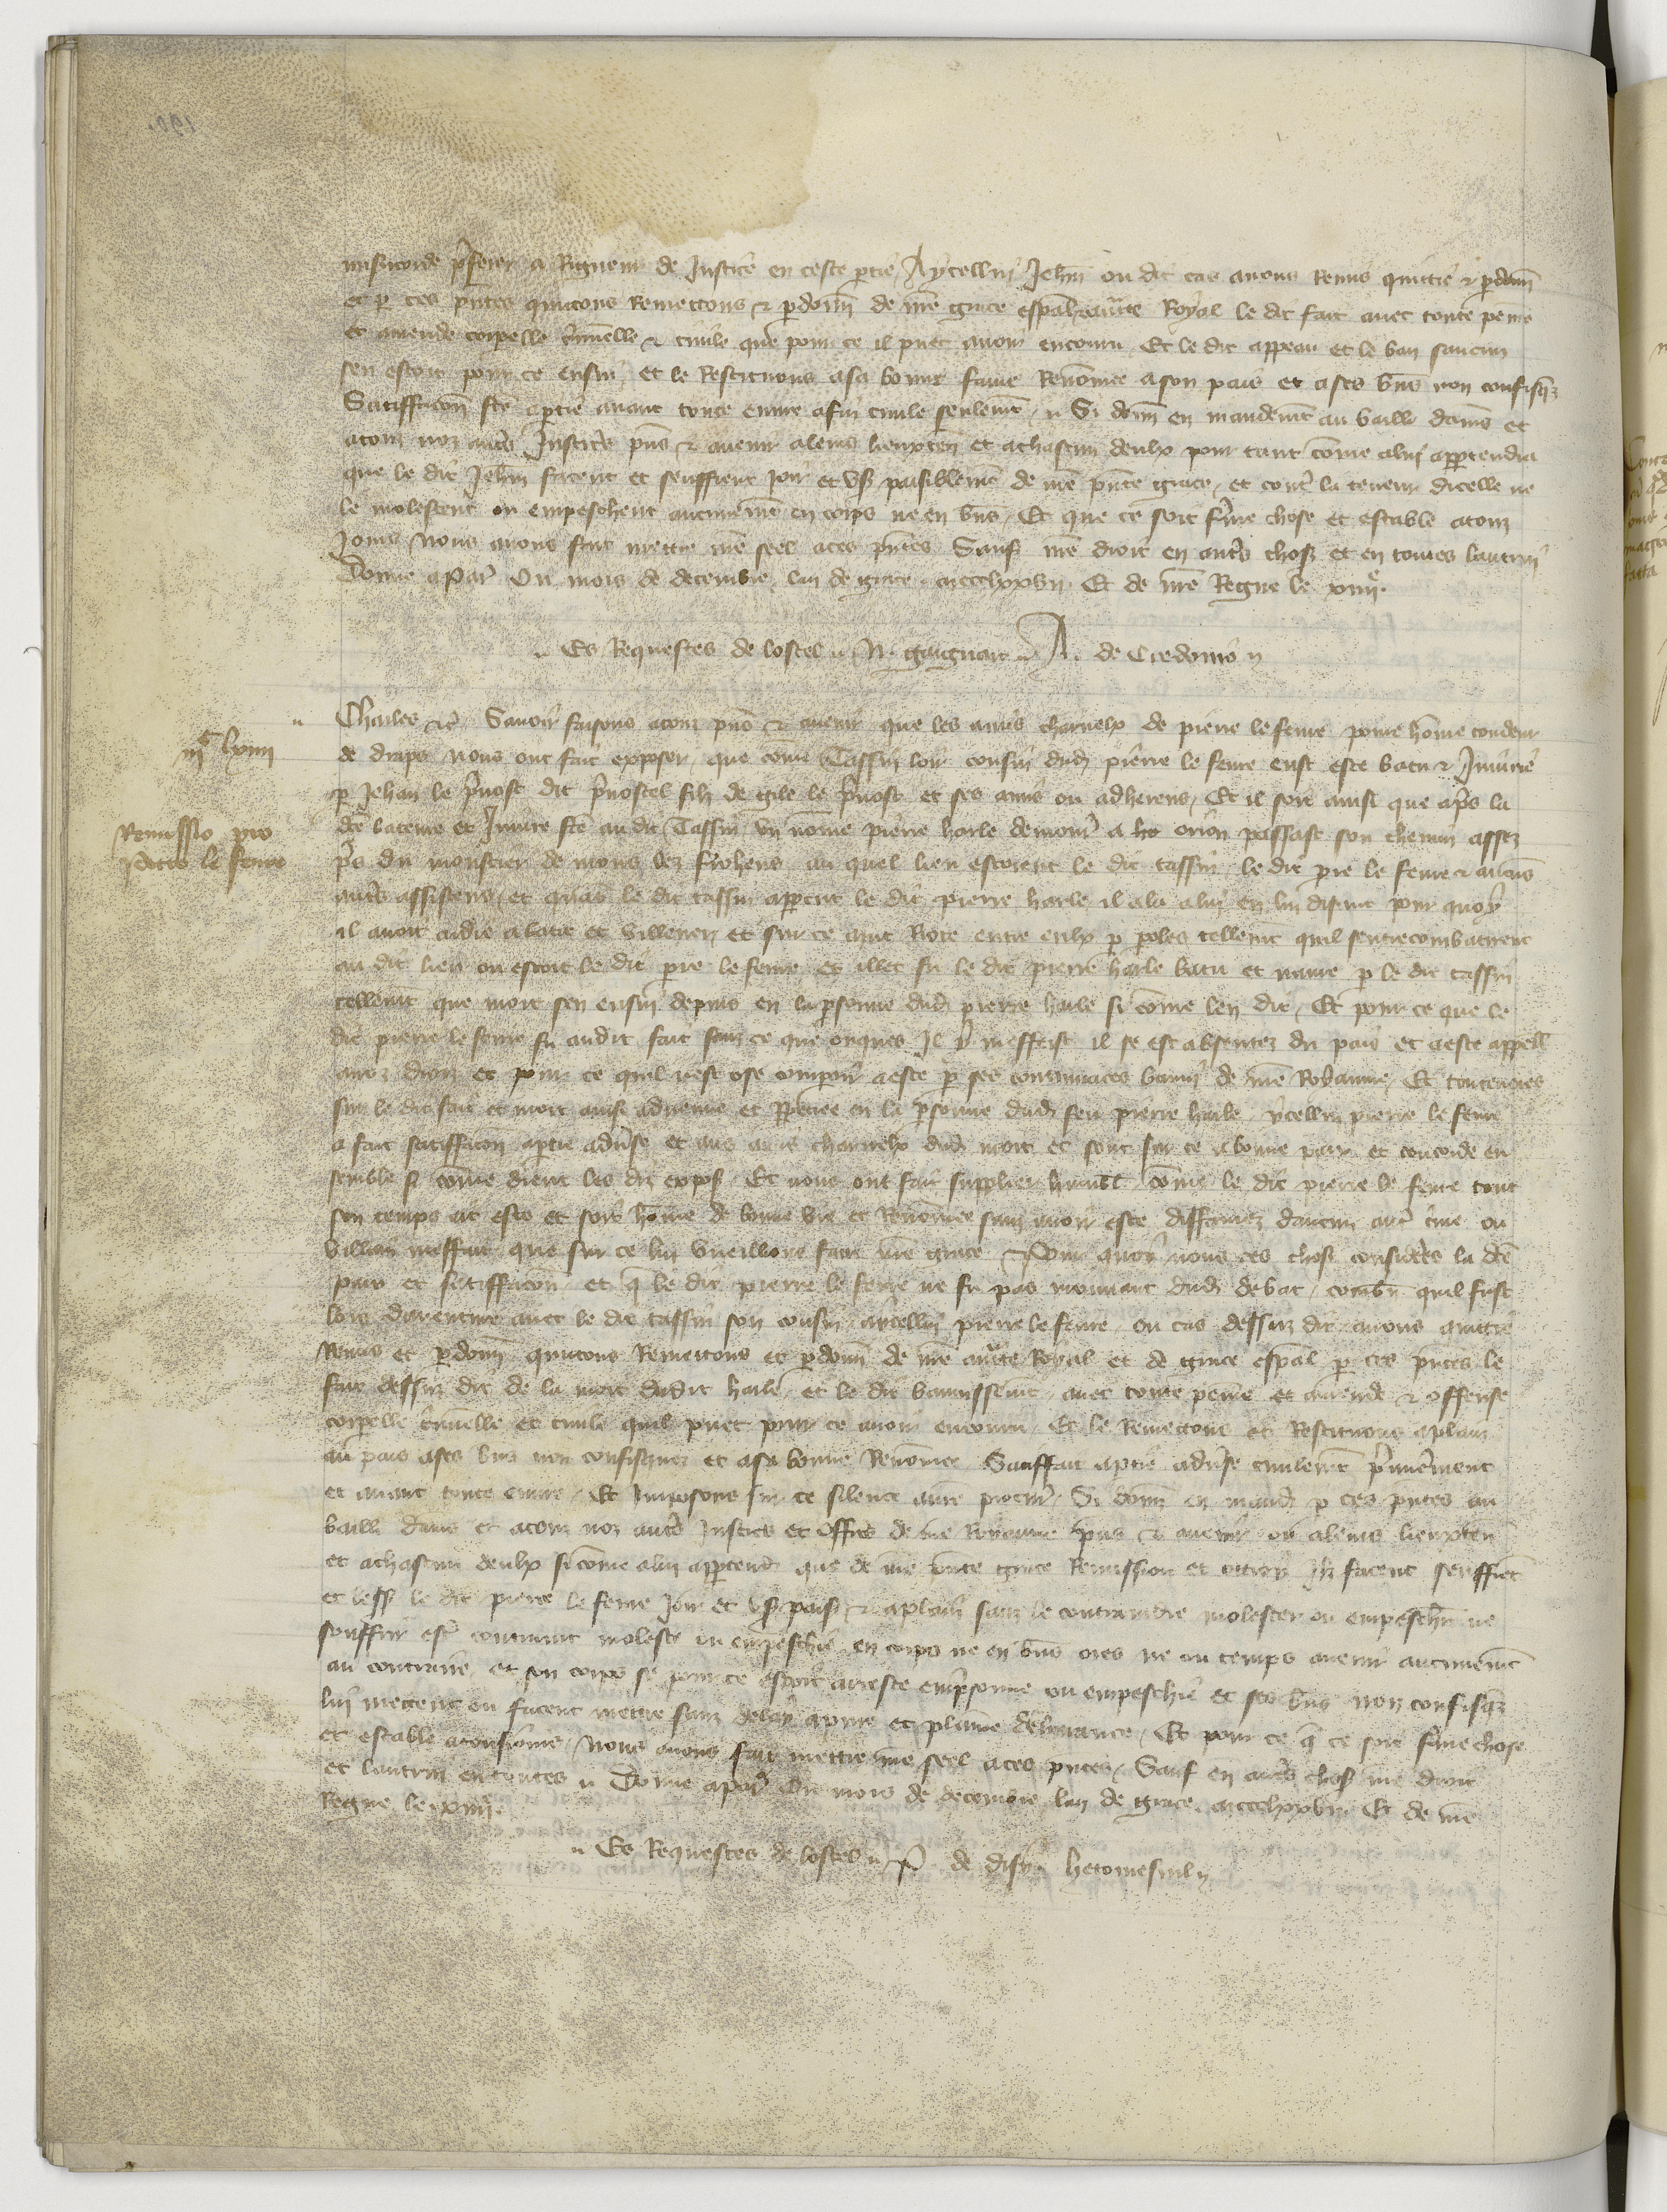 misicorde pferer a Rigueur de Justice en ceste ptie, Aycellui Jehan ou dit cas avons Remis quittie & pdonne
et p ces pntes quittons Remettons & pdonn de nre grace espal & aucte Royal le dit fait avec toute peine
et amende corpelle criminelle & civile que pour ce il puet avoir encouru. Et le dit appeau et le ban saucun
sen estoit pour ce ensui, et le Restituons a sa bonne fame Renomee a son pais et a ses bns non confisqz
Satisffacon fte a ptie avant toute euvre a fin civile seulemt. Si donn en mandemt au bailli damiens et
a touz noz autrs Justicrs pns & avenir a leurs lieuxten et a chascun deulx pour tant come a lui appartendra
que le dit Jehan facent et seuffrent Joir et usr paisiblemt de nre pnte grace, et contr la teneur dicelle ne
le molestent ou empeschent aucunemt en corps ne en bns, Et que ce soit ferme chose et estable a touz
Jours Nous avons fait mettre nre seel a ces pntes, Sauf nre droit en autrs choses et en toutes lautrui
Donne a Par ou mois de decembre lan de grace mccclxxvii Et de nre Regne le xiiiie.
Es Requestes de lostel N gaignart A de Credonio
iic lxiiii
Charles &c Savoir faisons a touz pns & avenir que les amis charnelx de pierre le fevre povre home tondeur
de draps nous ont fait exposer que come Tassin loir cousin dud pierre le fevre eust este batu & Injurie
p Jehan le prevost dit prevostel filz de gile le prevost et ses amis ou adherens, Et il soit ainsi que aprs la
dte bateure et Injure fte au dit Tassin un nome pierre harle demour a passast son chemin assez
Remissio pro
petro le fevre
prs du monstier de mons lez frohens au quel lieu estoient le dit tassin le dit pre le fevre & aucuns
autrs assistens, et quant le dit tassin apperceut le dit pierre harle il ala a lui en lui disant pour quoy
il avoit aidie a batre et villener, et sur ce eut Riote entre eulx p poles tellemt quil sentrecombatirent
au dit lieu ou estoit le dit pre le fevre et illec fu le dit pierre harle batu et navre p le dit tassin
tellemt que mort sen ensui depuis en la psonne dud pierre harle si come len dit, Et pour ce que le
dit pierre le fevre fu audit fait sanz ce que onques Il y meffeist il se est absentez du pais et a este appelle
a noz droiz et pour ce quil nest ose comparoir a este p ses contumaces banni de nre Royaume, Et
sur le dit fait et mort ainsi advenue et ppetree en la psonne dud feu pierre harle ycellui pierre le fevre
a fait satisffacon a ptie adverse et aus amis charnelx dud mort et sont sur ce a bonne paix et concorde en
semble si come dient les diz exposs, Et nous ont fait supplier humblt come le dit pierre le fevre tout
son temps ait este et soit home de bonne vie et Renomee sanz avoir este diffamez daucun autr crime ou
villain meffait que sur ce lui vueillions faire nre grace, Pour quoy nous ces choses considres la dte
paix et satisffacon et q le dit pierre le fevre ne fu pas mouvant dud debat, combn quil fust
lors daventure avec le dit tassin son cousin a ycellui pierre le fevre ou cas dessuz dit avons quittie
Remis et pdonn quittons Remettons et pdonn de nre aucte Royal et de grace espal p ces pntes le
fait dessuz dit de la mort dudit harle, et le dit bannissemt avec toute peine et amende & offense
corpelle criminelle et civile quil puet pour ce avoir encouru, Et le Remettons et Restituons a plain
au pais a ses bns non confisquez et a sa bonne Renomee, Sauffait a ptie adverse civilemt premierement
et avant toute euvre, Et Imposons sur ce silence a nre procur, Si donn en mand p ces pntes au
bailli damiens et a touz noz autrs Justicrs et officrs de nre Royaume pns & avenir ou a leurs lieuxten
et a chascun deulx si come a lui appartend que de nre pnte grace Remission et ottroy Ilz facent seuffrent
et lessent le dit pierre le fevre Joir et user paisi & a plain sanz le contraindre molester ou empeschr ne
souffrir estr contraint moleste ou empeschie en corps ne en bns ores ne ou temps avenir aucunemt
au contraire, et son corps se pour ce estoit arreste emprisonne ou empeschie et ses bns non confisqz
lui mettent ou facent mettre sanz delay a pure et plaine delivrance, Et pour ce q ce soit ferme chose
et estable a tousiours, Nous avons fait mettre nre seel a ces pntes, Sauf en autrs choses nre droit
et lautrui en toutes Donne a Par Ou mois de decembre lan de grace mccclxxvii Et de nre
Regne le xiiiie.
Es Requestes de lostel P de disy hetomesnil